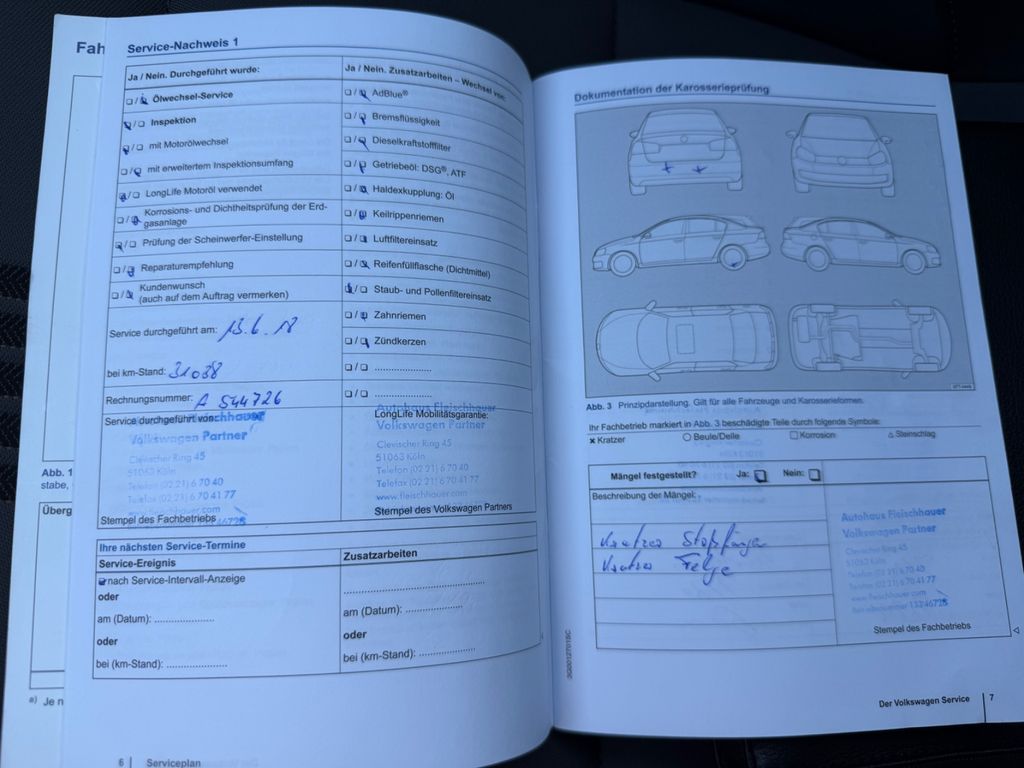 Fah
Abb. 1
stabe,
Überg
a) Je n
Service-Nachweis 1
Ja / Nein. Durchgeführt wurde:
Ölwechsel-Service
Inspektion
mit Motorölwechsel
mit erweitertem Inspektionsumfang
LongLife Motoröl verwendet
Korrosions- und Dichtheitsprüfung der Erd-
gasanlage
Prüfung der Scheinwerfer-Einstellung
Reparaturempfehlung
Kundenwunsch
(auch auf dem Auftrag vermerken)
Service durchgeführt am: 13.6.18
bei km-Stand: 31038
Rechnungsnummer: A 544726
Service durchgeführt von:
Volkswagen Partner
Clevischer Ring 45
51063 Köln
Telefon (02 21) 6 70 40
Telefax (02 21) 6 70 41 77
Stempel des Fachbetriebs
Ja / Nein. Zusatzarbeiten – Wechsel von:
AdBlue®
Bremsflüssigkeit
Dieselkraftstofffilter
Getriebeöl: DSG®, ATF
Haldexkupplung: Öl
Keilrippenriemen
Luftfiltereinsatz
Reifenfüllflasche (Dichtmittel)
Staub- und Pollenfiltereinsatz
Zahnriemen
Zündkerzen
Autohaus Fleischhauer
LongLife Mobilitätsgarantie:
Volkswagen Partner
Clevischer Ring 45
51063 Köln
Telefon (02 21) 6 70 40
Telefax (02 21) 6 70 41 77
www.fleischhauer.com
Stempel des Volkswagen Partners
Ihre nächsten Service-Termine
Service-Ereignis
nach Service-Intervall-Anzeige
oder
am (Datum): ....................
oder
bei (km-Stand): ....................
Zusatzarbeiten
am (Datum): ...................
oder
bei (km-Stand): ...................
6 Serviceplan
Dokumentation der Karosserieprüfung
Abb. 3 Prinzipdarstellung. Gilt für alle Fahrzeuge und Karosserieformen.
Ihr Fachbetrieb markiert in Abb. 3 beschädigte Teile durch folgende Symbole:
× Kratzer ○ Beule/Delle □ Korrosion △ Steinschlag
Mängel festgestellt? Ja: Nein:
Beschreibung der Mängel:
Kratzer Stoßfänger
Kratzer Felge
Autohaus Fleischhauer
Volkswagen Partner
Clevischer Ring 45
51063 Köln
Telefon (02 21) 6 70 40
Telefax (02 21) 6 70 41 77
www.fleischhauer.com
Stempel des Fachbetriebs
3G0012701BC
Der Volkswagen Service 7